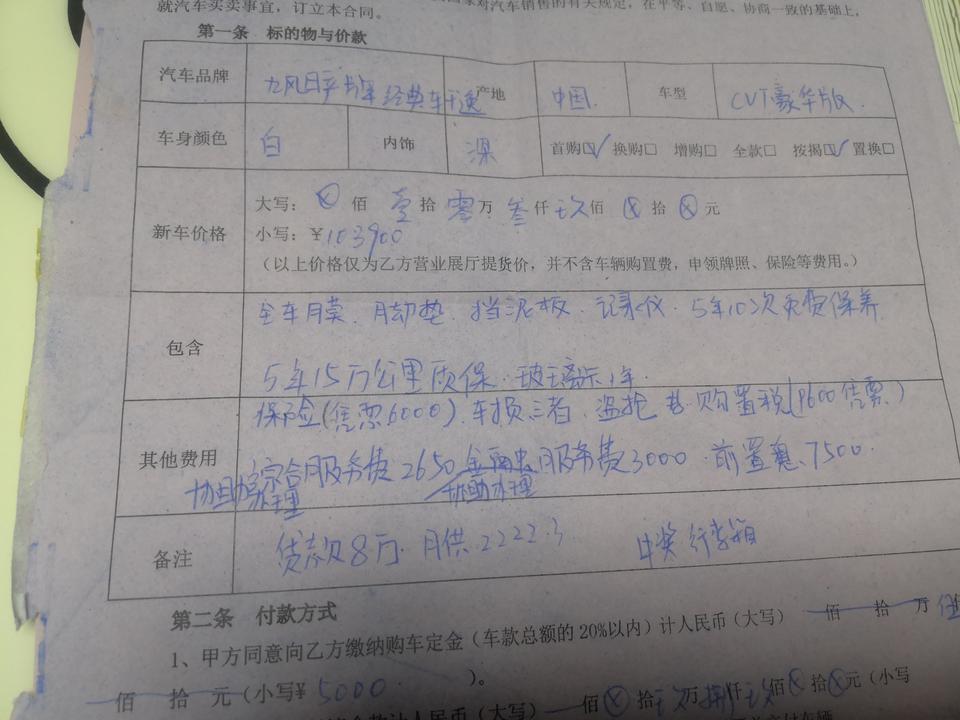 国家对汽车销售的有关规定，在平等、自愿、协商一致的基础上，
就汽车买卖事宜，订立本合同。
第一条 标的物与价款
汽车品牌 经典轩逸 产地 中国. 车型 CVT豪华版.
车身颜色 白 内饰 深 首购☑ 换购□ 增购□ 全款□ 按揭☑ 置换□
新车价格
大写：ⓧ佰 壹拾 零万 叁仟 玖佰 ⓧ拾 ⓧ元
小写：￥103900
（以上价格仅为乙方营业展厅提货价，并不含车辆购置费，申领牌照、保险等费用。）
包含
全车膜. 脚垫. 挡泥板. 记录仪. 5年10次免费保养
5年15万公里质保. 玻璃险1年.
其他费用
保险(凭票6000). 车损三者. 盗抢 购置税(9600凭票)
综合服务费2650 服务费3000. 前置息. 7500.
协助办理 协助办理
备注
贷款8万. 月供.2222.3 中奖 行李箱
第二条 付款方式
1、甲方同意向乙方缴纳购车定金（车款总额的20%以内）计人民币（大写） 佰 拾 万 伍
佰 拾 元（小写￥5000. ）。
计人民币（大写） 佰ⓧ拾 万 仟玖佰ⓧ拾ⓧ元（小写